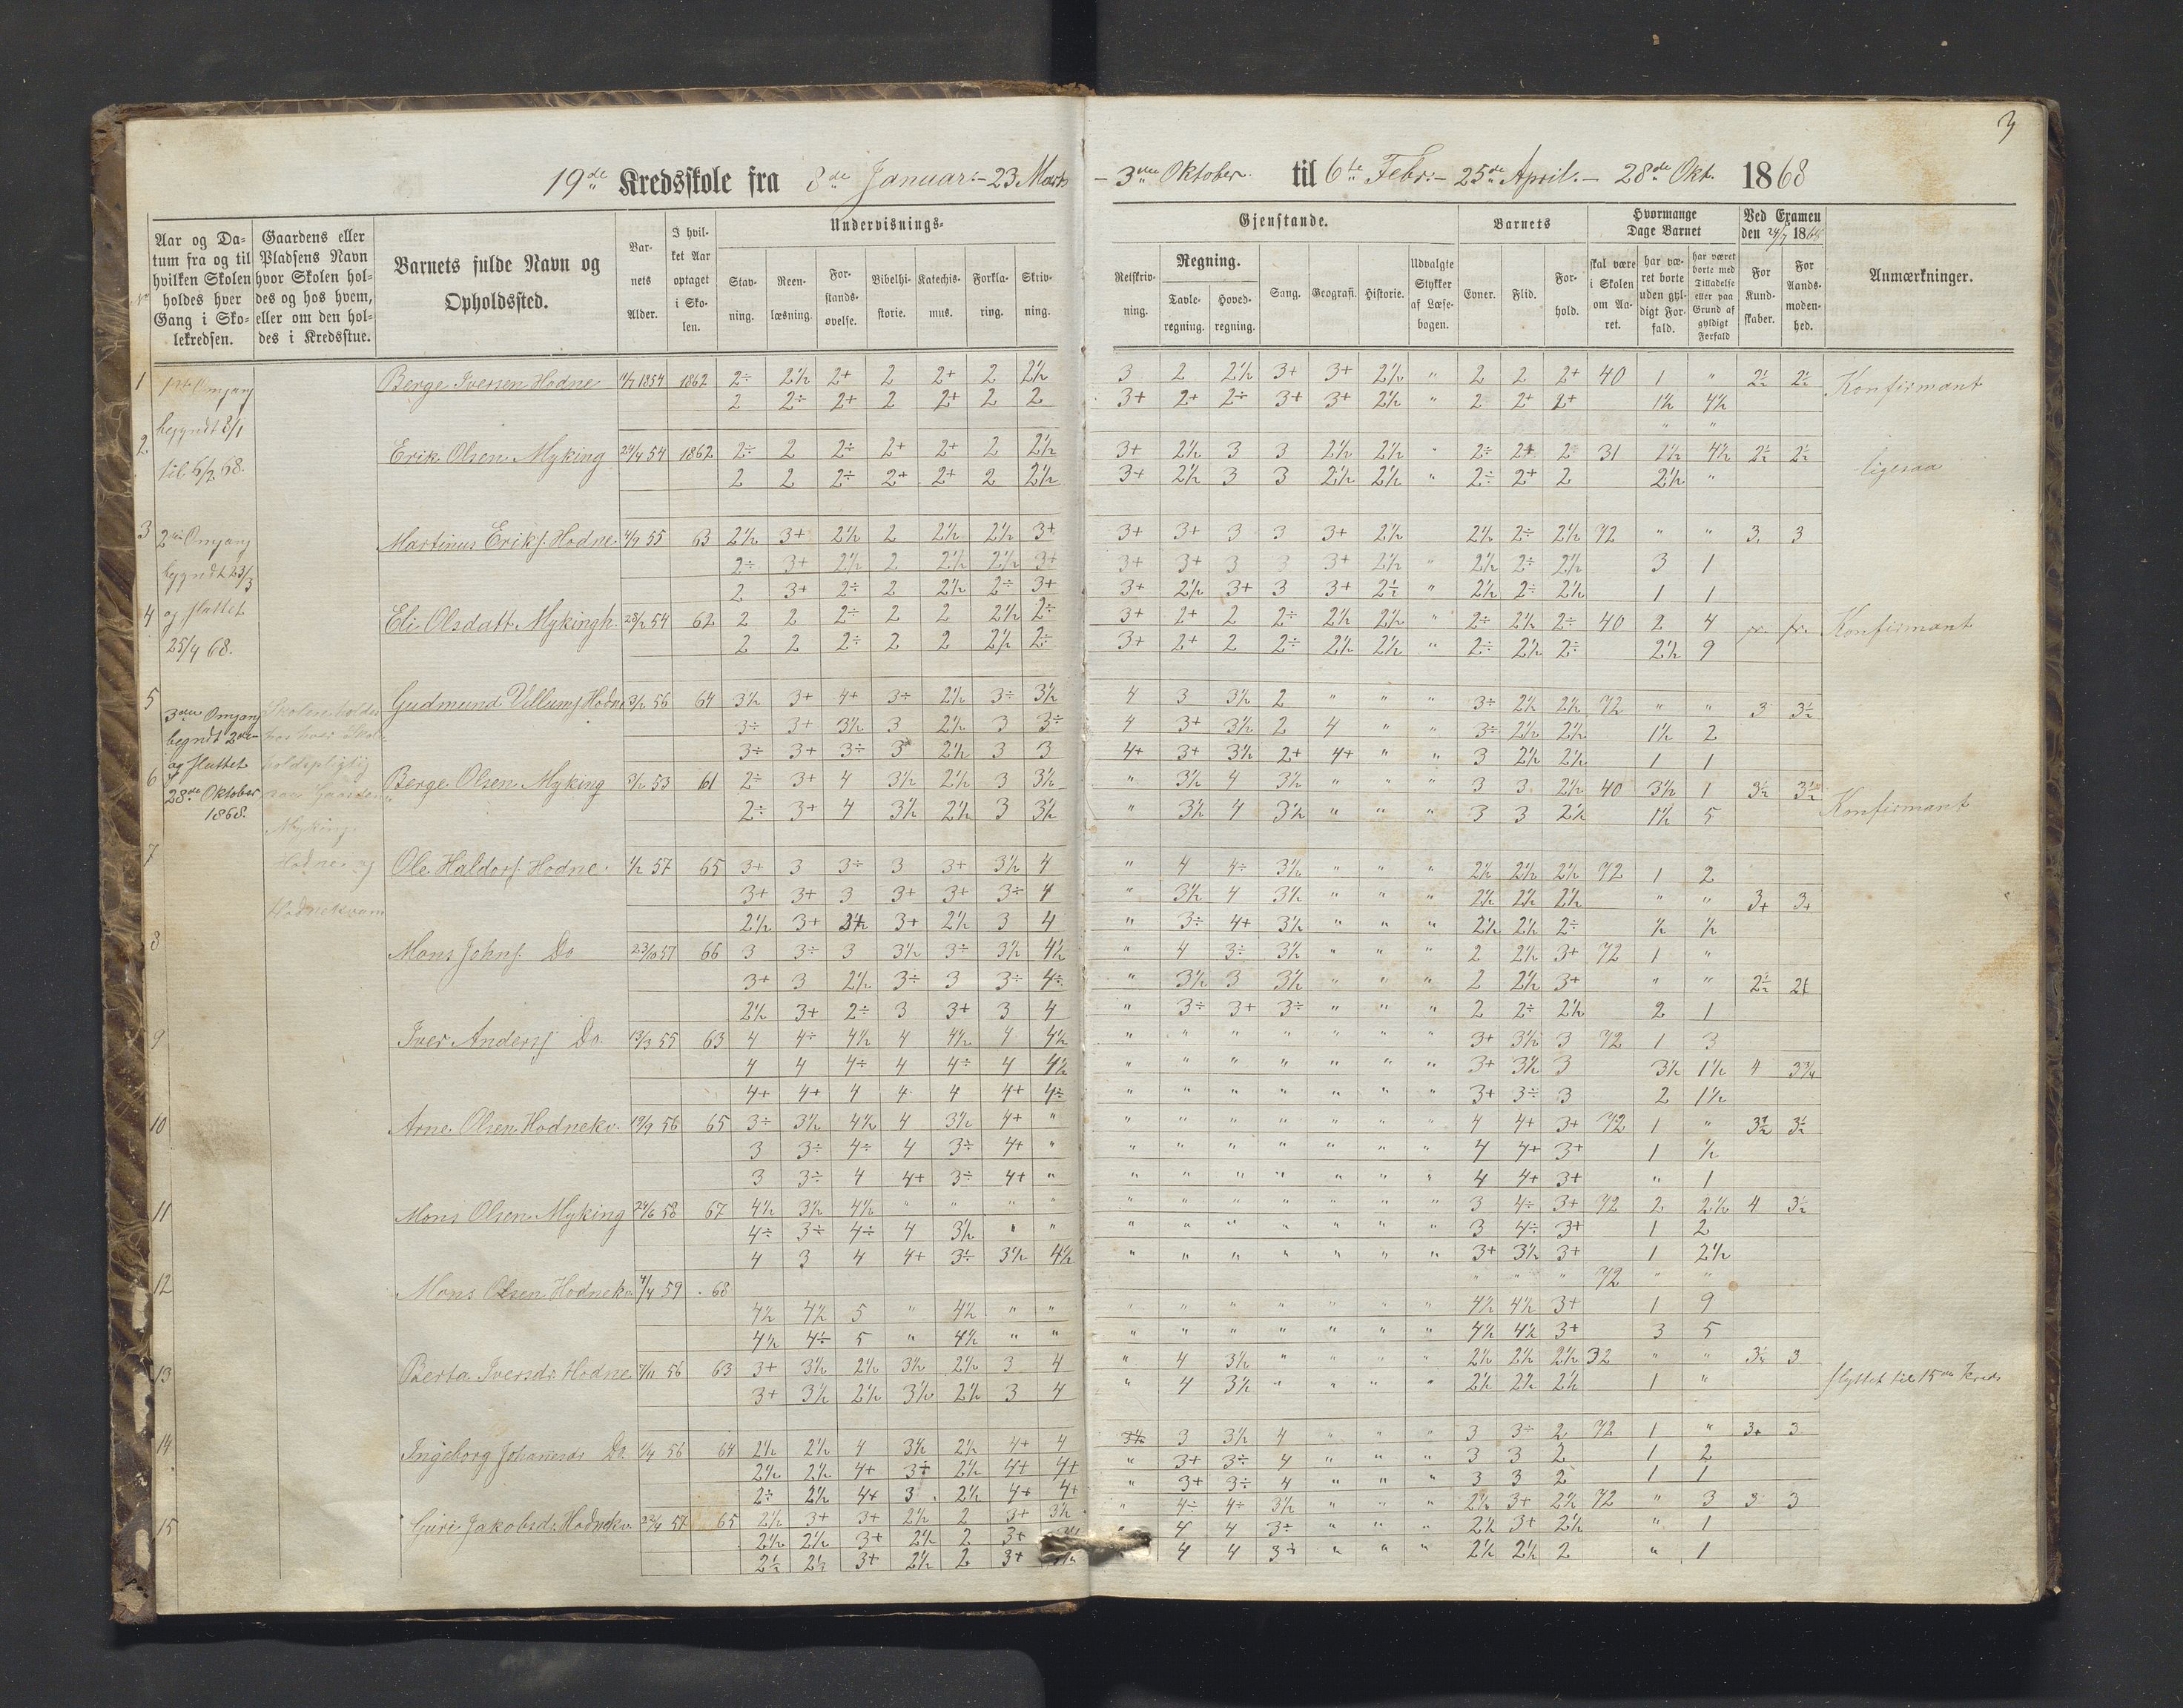 3
19de Kredsskole fra 8de Januar: – 23 Marts – 3die Oktober. til 6te Febr: – 25de April. – 28de Okt. 1868
Aar og Datum fra og til hvilken Skolen holdes hver Gang i Skolekredsen.
Gaardens eller Pladsens Navn hvor Skolen holdes og hos hvem, eller om den holdes i Kredsstue.
Barnets fulde Navn og Opholdssted.
Barnets Alder.
I hvilket Aar optaget i Skolen.
Undervisnings- Gjenstande.
Stavning. Reenlæsning. Forstandsøvelse. Bibelhistorie. Katechismus. Forklaring. Skrivning.
Retskrivning. Regning. Tavleregning. Hovedregning. Sang. Geografi. Historie. Udvalgte Stykker af Læsebogen.
Barnets Evner. Flid. Forhold.
Hvormange Dage Barnet
skal være i Skolen om Aaret. har været borte uden gyldigt Forfald. har været borte med Tilladelse eller paa Grund af gyldigt Forfald
Ved Examen den 24/7 1868
For Kundskaber. For Aandsmodenhed.
Anmærkninger.
1ste Omgang
begyndt 8/1
til 6/2 68.
2den Omgang
begyndt 23/3
og sluttet
25/4 68.
3die Omgang
begyndt 2den
og sluttet
28de Oktober
1868.
Skolen holdes
hos hver Skole-
holdspligtig
paa Gaardene
Myking,
Hodne og
Hodnekvam
1 Berge Iversen Hodne 1854 1862 2÷ 2½ 2+ 2 2+ 2 2½ 3 2 2½ 3+ 3+ 2½ " 2 2 2+ 40 1 " 2½ 2½ Konfirmant
2 2÷ 2+ 2 2+ 2 2 3+ 2+ 2÷ 3+ 3+ 2½ " 2 2+ 2+ 1½ 4½
2 Erik Olsen Myking 24/4 54 1862 2÷ 2 2÷ 2+ 2+ 2 2½ 3+ 2½ 3 3 2½ 2½ " 2÷ 2+ 2 31 1½ 4½ 2½ 2½ ligesaa
2 2 2÷ 2+ 2+ 2 2½ 3+ 2½ 3 3 2½ 2½ " 2÷ 2+ 2 2½ "
3 Martinus Eriks. Hodne 4/9 55 63 2½ 3+ 2½ 2 2½ 2½ 3+ 3+ 3+ 3 3 3+ 2½ 2½ 2÷ 2½ 72 " " 3 3
2÷ 3+ 2½ 2 2½ 2½ 3+ 3+ 3+ 3 3 3+ 2½ " 2½ 2÷ 2½ 3 1
2 3+ 2÷ 2 2½ 2÷ 3+ 3+ 2½ 3+ 3 3+ 2½ " 2½ 2÷ 2½ 1 1
4 Eli Olsdatt. Myking 54 62 2 2 2÷ 2 2 2½ 2÷ 3+ 2+ 2 2÷ 2½ 2½ " 2÷ 2½ 2÷ 40 2 4 fr. fr. Konfirmant
2 2 2÷ 2 2 2½ 2÷ 3+ 2+ 2 2÷ 2½ 2½ " 2÷ 2½ 2÷ 2½ 9
5 Gudmund Villums. Hodne 56 64 3½ 3+ 4+ 3÷ 2½ 3÷ 3½ 4 3 3½ 2 " " " 3÷ 2½ 2½ 72 " " 3 3½
3÷ 3+ 3½ 3 2½ 3 3÷ 4 3+ 3½ 2 4 " " 3÷ 2½ 2½ 1½ 2
3÷ 3+ 3÷ 3 2½ 3 3 4+ 3+ 3½ 2+ 4+ " " 3 2½ 2½ 1 1
6 Berge Olsen Myking 53 61 2÷ 3+ 4 3½ 2½ 3 3½ " 3½ 4 3½ " " " 3 3 2½ 40 3½ 1 3½ 3½ Konfirmant
2÷ 3+ 4 3½ 2½ 3 3½ " 3½ 4 3½ " " " 3 3 2½ 1½ 5
7 Ole Haldors. Hodne 57 65 3+ 3 3÷ 3 3+ 3½ 4 " 4 4÷ 3½ " " " 2½ 2½ 2½ 72 1 2
3+ 3+ 3 3+ 3+ 3÷ 4 " 3½ 4 3½ " " " 2½ 2½ 2½ " " 3+ 3+
2½ 3+ 3+ 2½ 3 4 " 3÷ 4+ 3½ " " " 2½ 2½ 2÷ ½ ½
8 Mons Johns. Do 23/10 57 66 3 3÷ 3 3½ 3÷ 3½ 4½ " 4 3÷ 3½ " " " 2 2½ 3+ 72 1 "
3+ 3 2½ 3÷ 3 3÷ 4÷ " 3½ 3 3½ " " " 2 2½ 3+ " " 2½
2½ 3+ 2÷ 3 3+ 3 4 " 3÷ 3+ 3÷ " " " 2 2÷ 2½ 2 1
9 Iver Anders. Do. 13/3 55 63 4 4÷ 4½ 4 4½ 4 4½ " " " " " " " 3+ 3½ 3 72 1 3
4 4 4÷ 4 4÷ 4 4½ " " " " " " " 3+ 3½ 3 3½ 1½ 4 3¾
4+ 4+ 4 4 4 4+ 4÷ " " " " " " " 3+ 3÷ 3 2 1½
10 Arne Olsen Hodnekv. 56 65 3÷ 3½ 4½ 4 3½ 4+ " " " " " " " " 4 4+ 3+ 72 1 " 3½ 3½
3 3÷ 4÷ 4 3÷ 4+ " " " " " " " " 4 4+ 3+ 1 ½
3 3÷ 4 4+ 3÷ 4+ " " " " " " " " 4 4+ 3+ " 1
11 Mons Olsen Myking 24/6 58 67 4½ 3½ 4½ " " " " " " " " " " " 3 4÷ 3+ 72 2 2½ 4 3½
4÷ 3÷ 4÷ 4 3½ " " " " " " " " " 3 4÷ 3+ 1 2
4 3 4 4+ 3÷ 3½ 4½ " " " " " " " 3+ 3½ 3+ 1 2½
12 Mons Olsen Hodnekv. 59 68 " " " 72 " "
4½ 4½ 5 " 4½ " " " " " " " " " 4½ 4½ 3+ 1 9
4½ 4÷ 5 " 4½ " " " " " " " " " 4½ 4½ 3+ 3 5
13 Berta Iversdr. Hodne 56 63 3+ 3½ 2½ 3½ 2½ 3 4 " 4 3½ " " " " 2½ 2½ 2½ 32 " " 3½ 3 flyttet til 15de Kreds
3+ 3½ 2½ 3½ 2½ 3 4 " 4 3½ " " " " 2½ 2½ 2½ 1 "
14 Ingeborg Johannesdr. Do. 56 64 2½ 2½ 4 3½ 2½ 4+ 4 3½ 3 3½ 4 " " " 3 3÷ 2 72 1 " 3+ 3
2½ 2½ 4+ 3÷ 2½ 4+ 4+ " 3+ 3÷ 4 " " " 3 3 2 1 2
2÷ 2½ 4+ 3 2½ 4+ 4+ " 3+ 3÷ 4 " " " 3 3 2 1 1
15 Guri Jakobsdr. Hodnekv. 57 65 2½ 3+ 3+ 2½ 2 3+ 3½ " 4÷ 4÷ 3½ " " " 2½ 3+ 2½ 72 " 3 3 3
2½ 2½ 3+ 2½ 2 3+ 4 4 3÷ " " " 2½ 3+ 2½ " 1
2½ 2½ 3+ 2½ 2 3+ 4 4 3÷ " " " 2½ 2½ 2 " 1